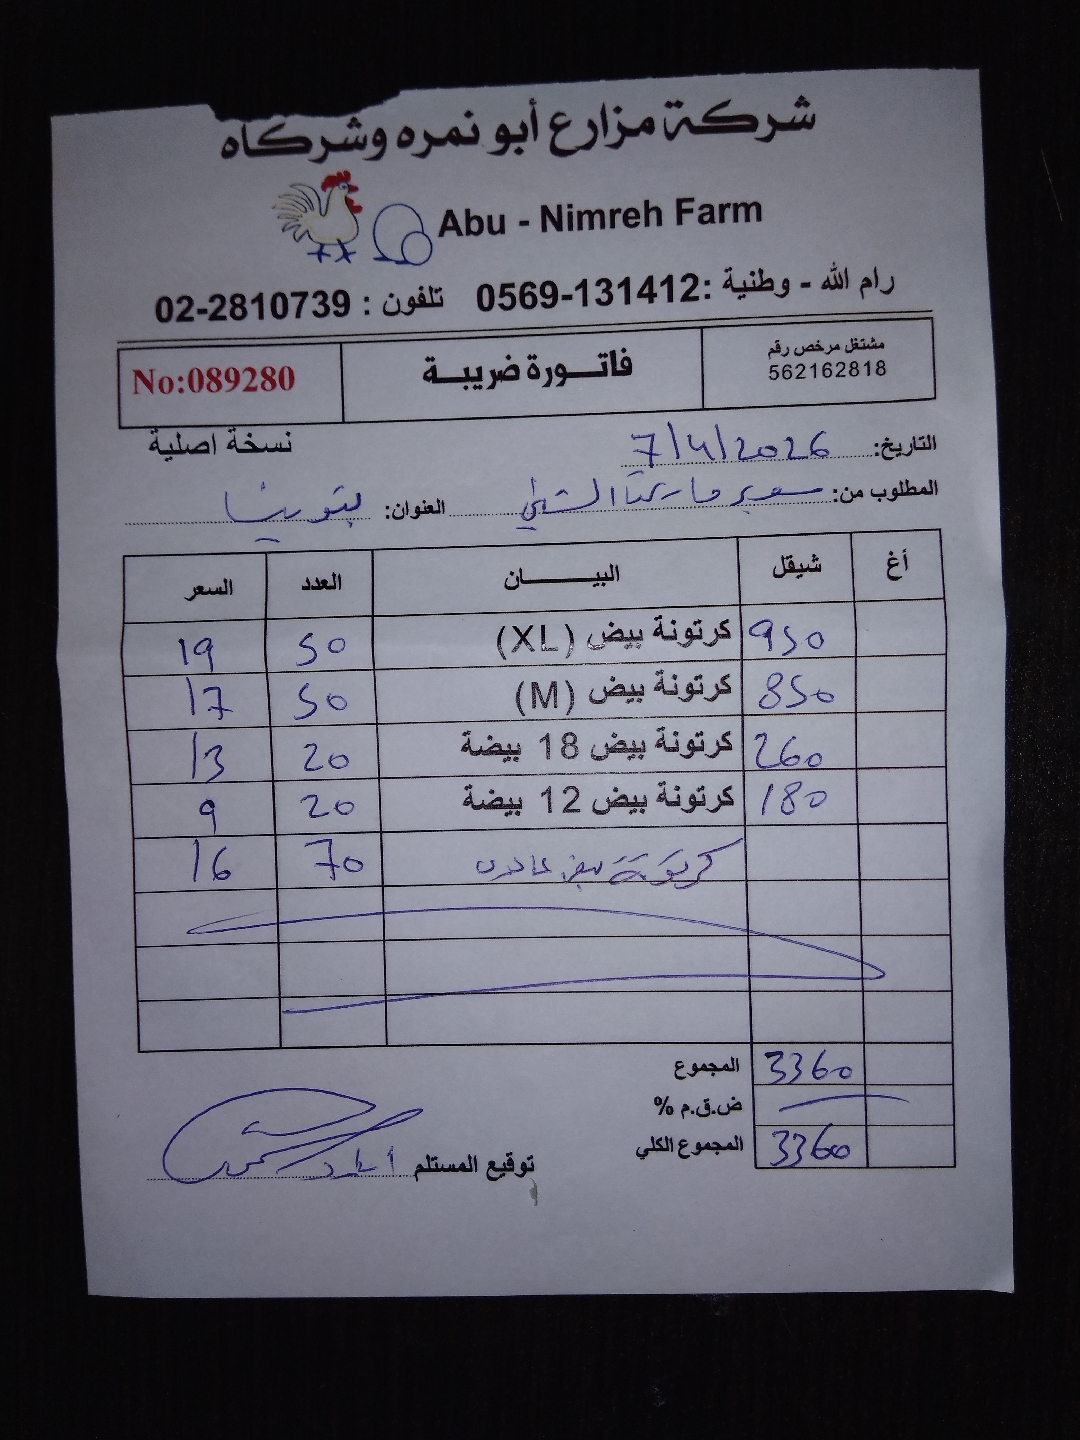 شركة مزارع أبو نمره وشركاه
Abu - Nimreh Farm
رام الله - وطنية :0569-131412 تلفون : 02-2810739
مشتغل مرخص رقم
562162818
فاتورة ضريبة
No:089280
نسخة اصلية
التاريخ: 7/4/2026
المطلوب من: سوبر ماركت العنوان: بتونيا
أغ شيقل البيان العدد السعر
950 كرتونة بيض (XL) 50 19
850 كرتونة بيض (M) 50 17
260 كرتونة بيض 18 بيضة 20 13
180 كرتونة بيض 12 بيضة 20 9
كرتونة بيض 70 16
المجموع 3360
ض.ق.م %
المجموع الكلي 3360
توقيع المستلم